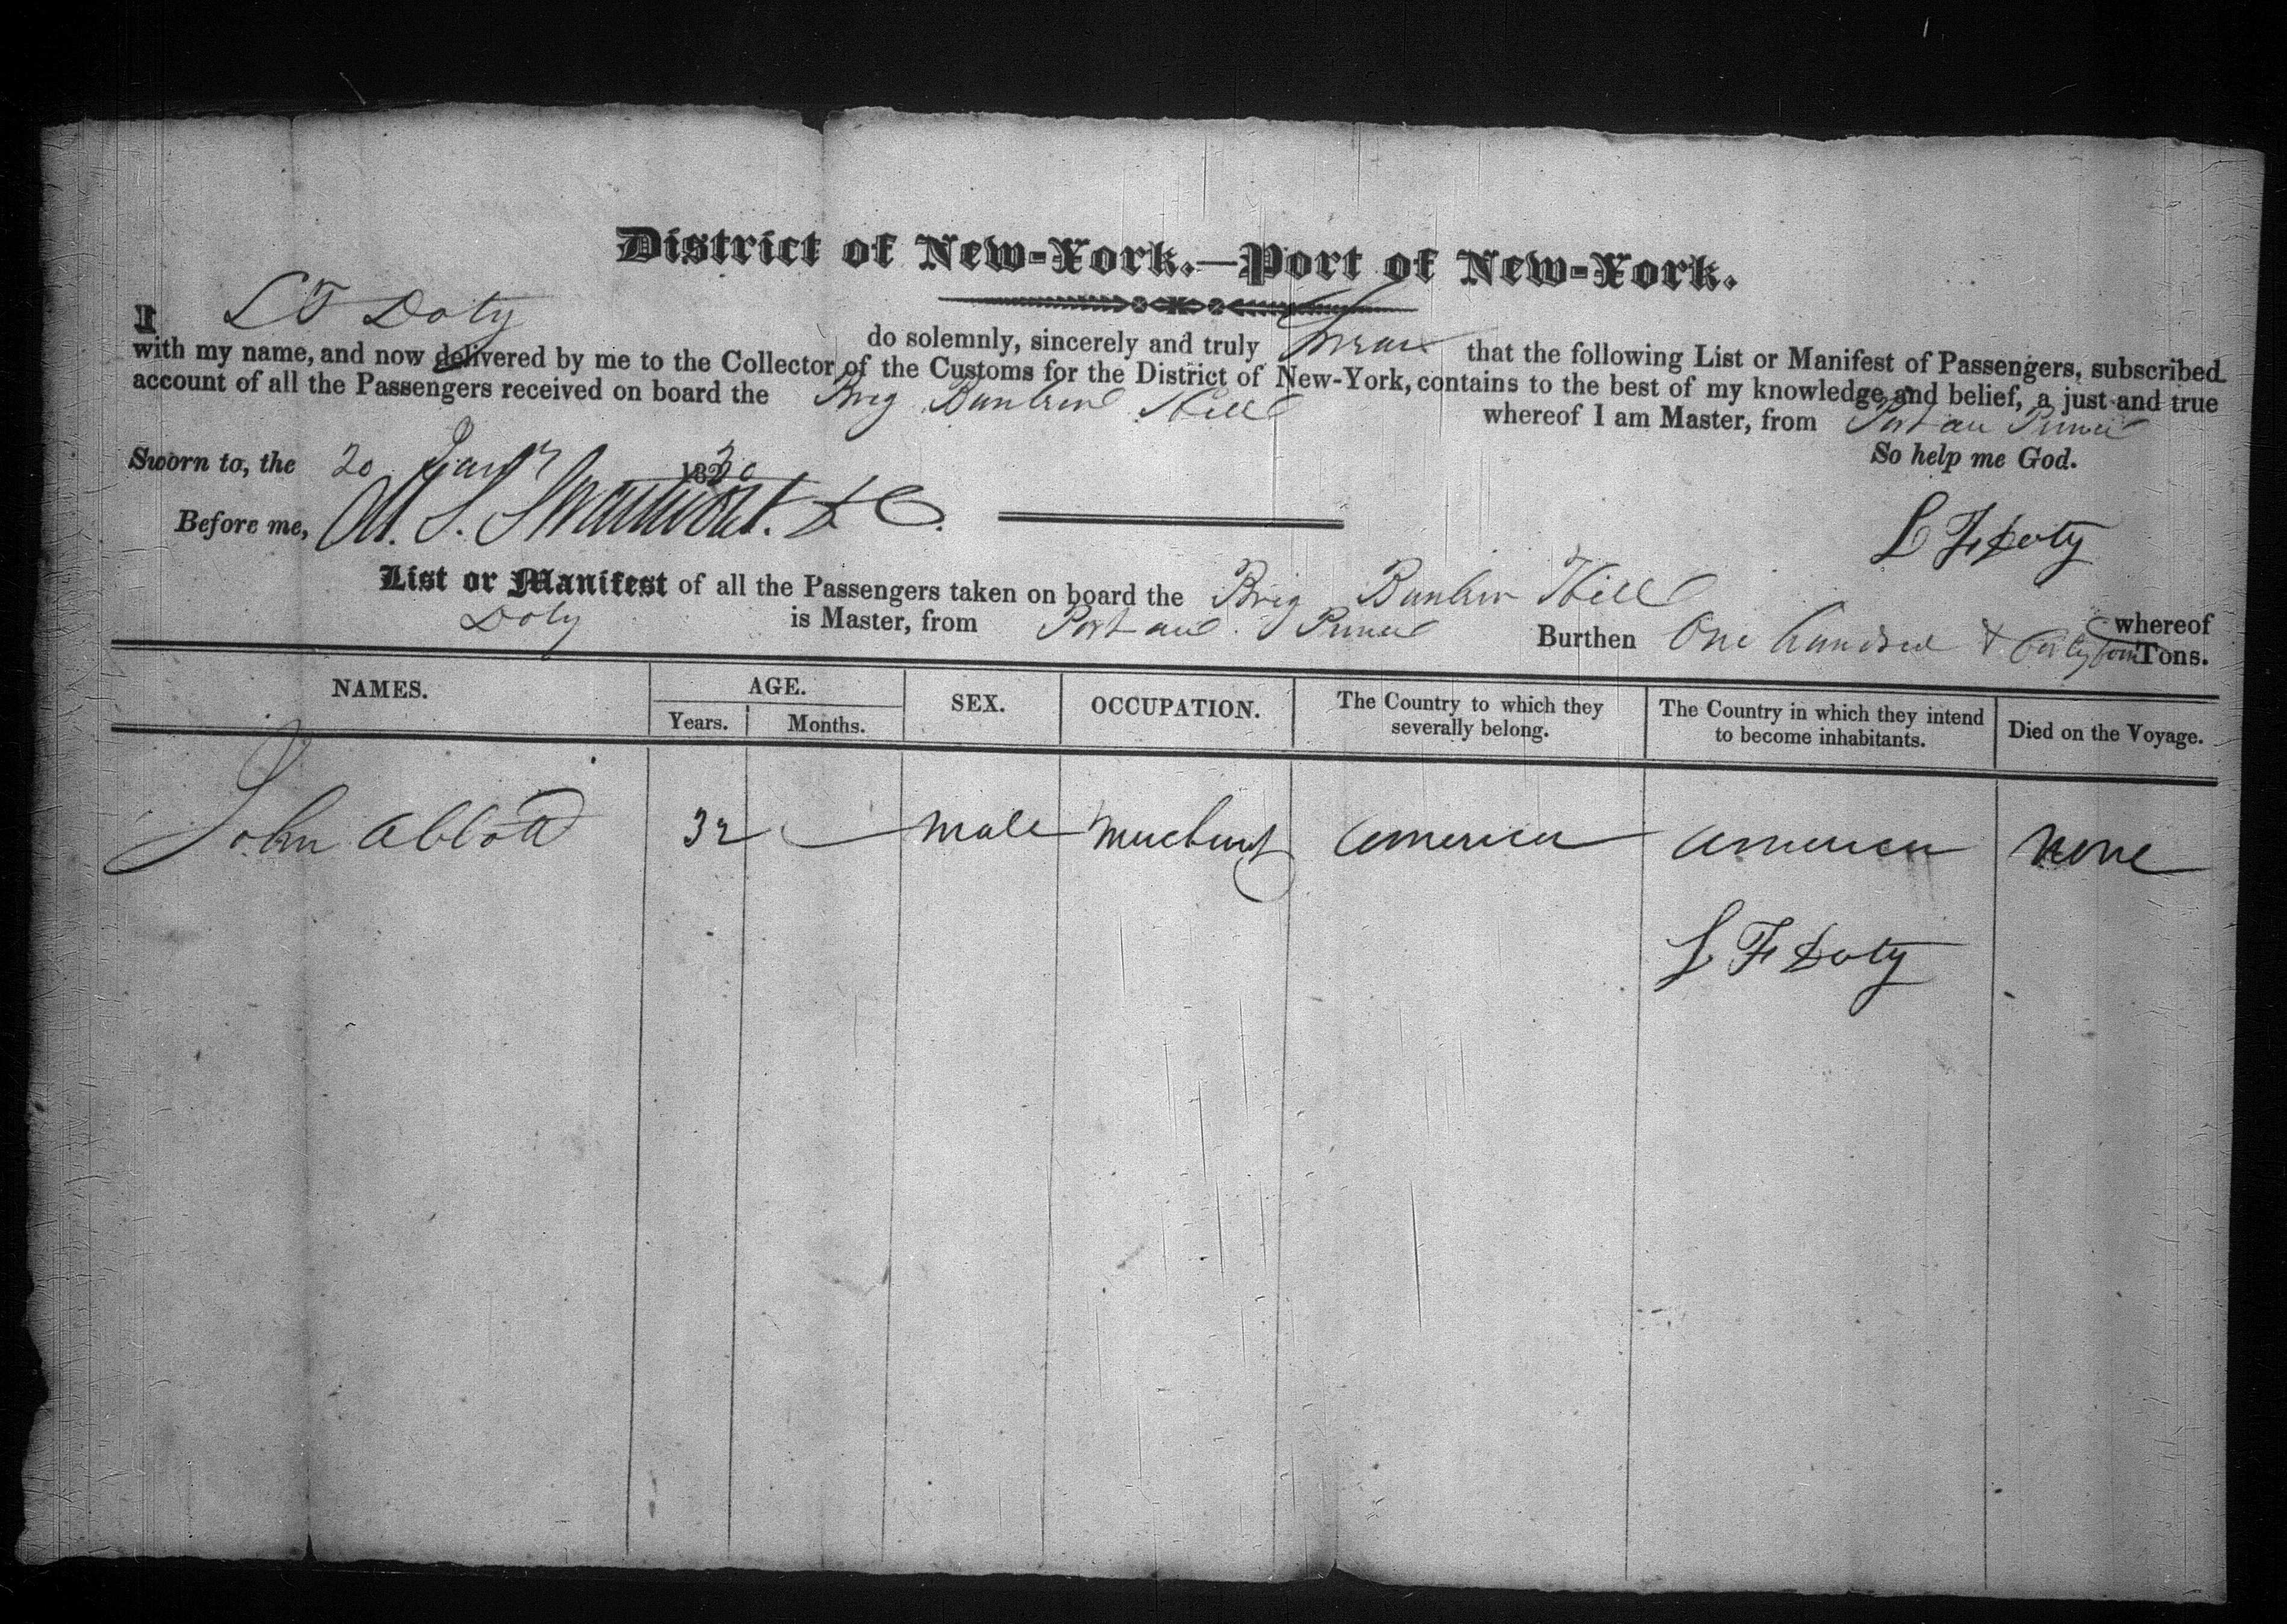 District of New-York.—Port of New-York.
I L F Doty do solemnly, sincerely and truly Swear that the following List or Manifest of Passengers, subscribed
with my name, and now delivered by me to the Collector of the Customs for the District of New-York, contains to the best of my knowledge and belief, a just and true
account of all the Passengers received on board the Brig Bunker Hill whereof I am Master, from Port au Prince
So help me God.
Sworn to, the 20 Jany 1830
Before me, M. S. Swartwout. D C. L F Doty
List or Manifest of all the Passengers taken on board the Brig Bunker Hill whereof
Doty is Master, from Port au Prince Burthen One hundred & forty four Tons.
NAMES. AGE. SEX. OCCUPATION. The Country to which they severally belong. The Country in which they intend to become inhabitants. Died on the Voyage.
Years. Months.
John Abbott 32 male Merchant America America None
L F Doty